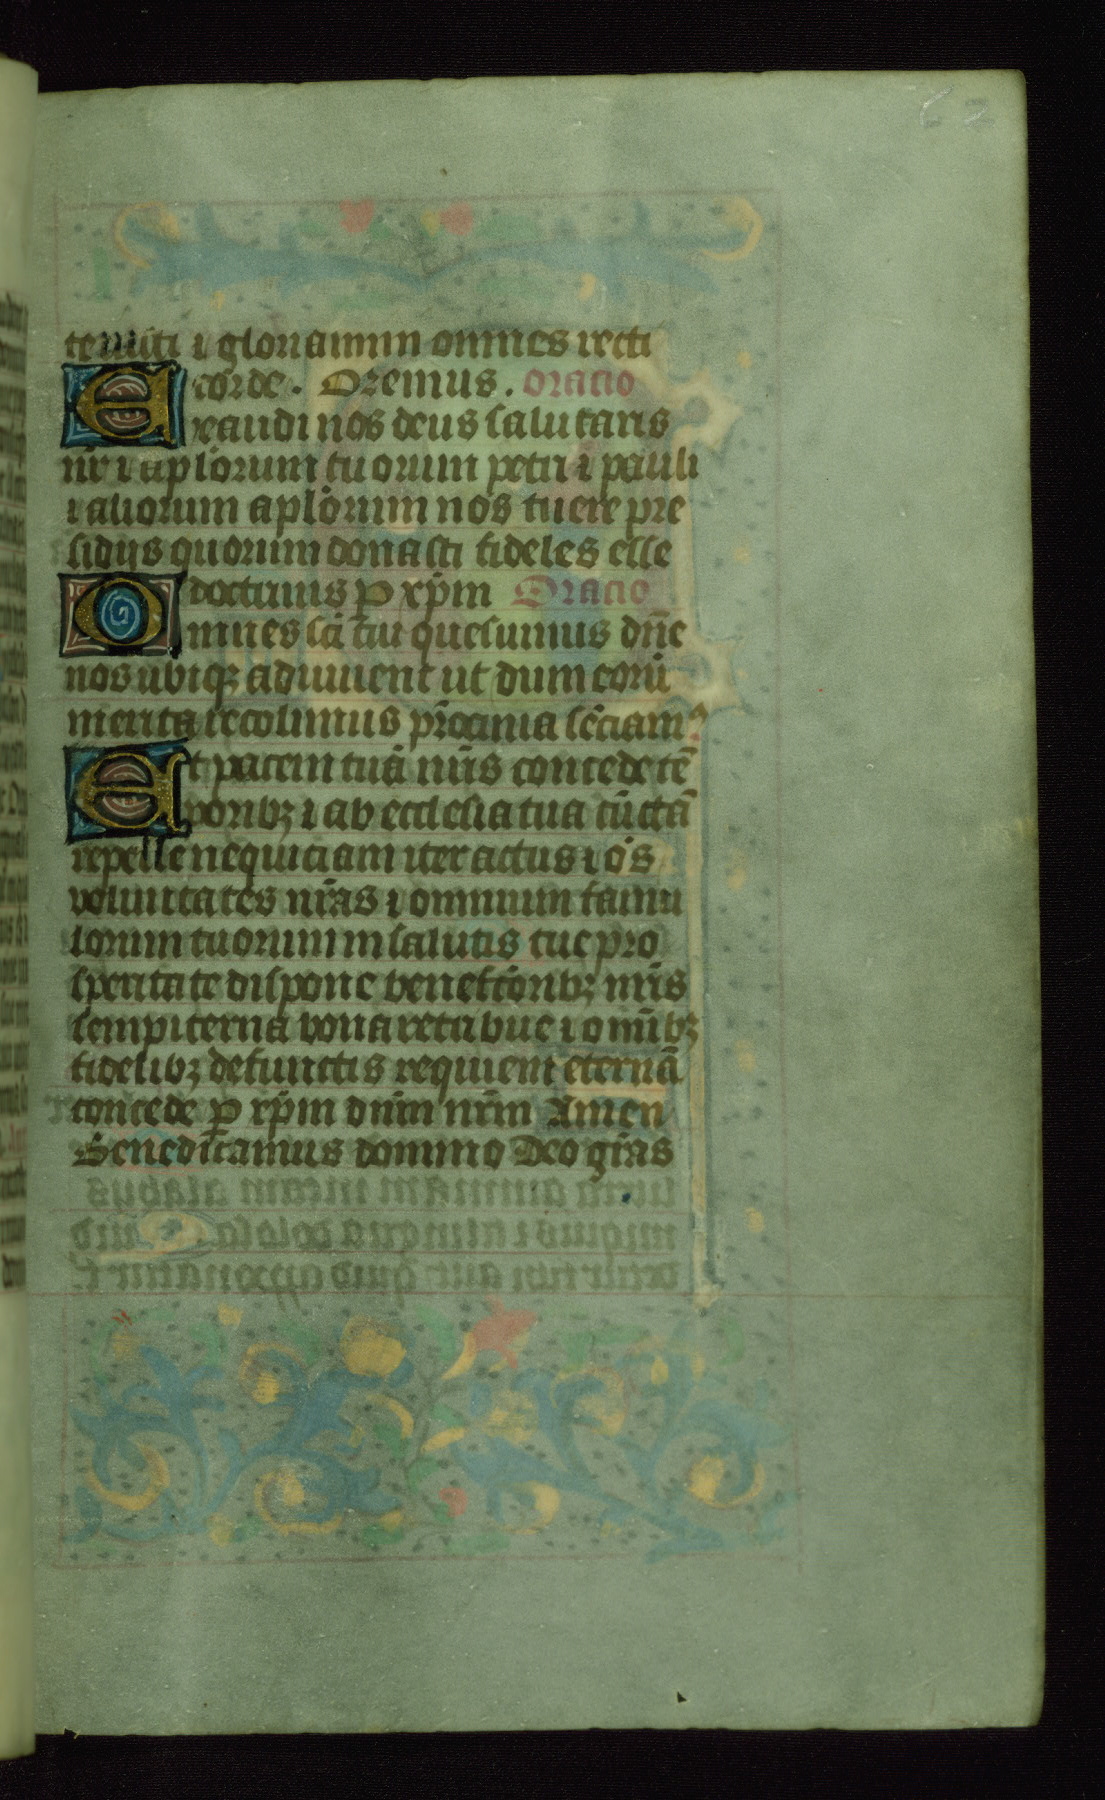 62
et gloriamini omnes recti
corde. Oremus. oracio
Exaudi nos deus salutaris
nr̄ et apl̄orum tuorum petri et pauli
et aliorum apl̄orum nos tuere pre
sidijs quorum donasti fideles esse
doctrinis ꝑ xp̄m Oracio
Omnes sc̄i tui quesumus dn̄e
nos ubiqꝫ adiuuent ut dum eorū
merita recolimus pr̄ocinia senciam9
Et pacem tuā nr̄is concede tē
poribꝫ et ab ecclesia tua cūctā
repelle nequiciam iter actus et o̅s
voluntates nr̄as et omnium famu
lorum tuorum in salutis tue pro
speritate dispone benefc̄oribꝫ nr̄is
sempiterna bona retribue et om̄ibꝫ
fidelibꝫ defunctis requiem eternā
concede ꝑ xp̄m dn̄m nr̄m Amen
Benedicamus domino Deo gr̄as